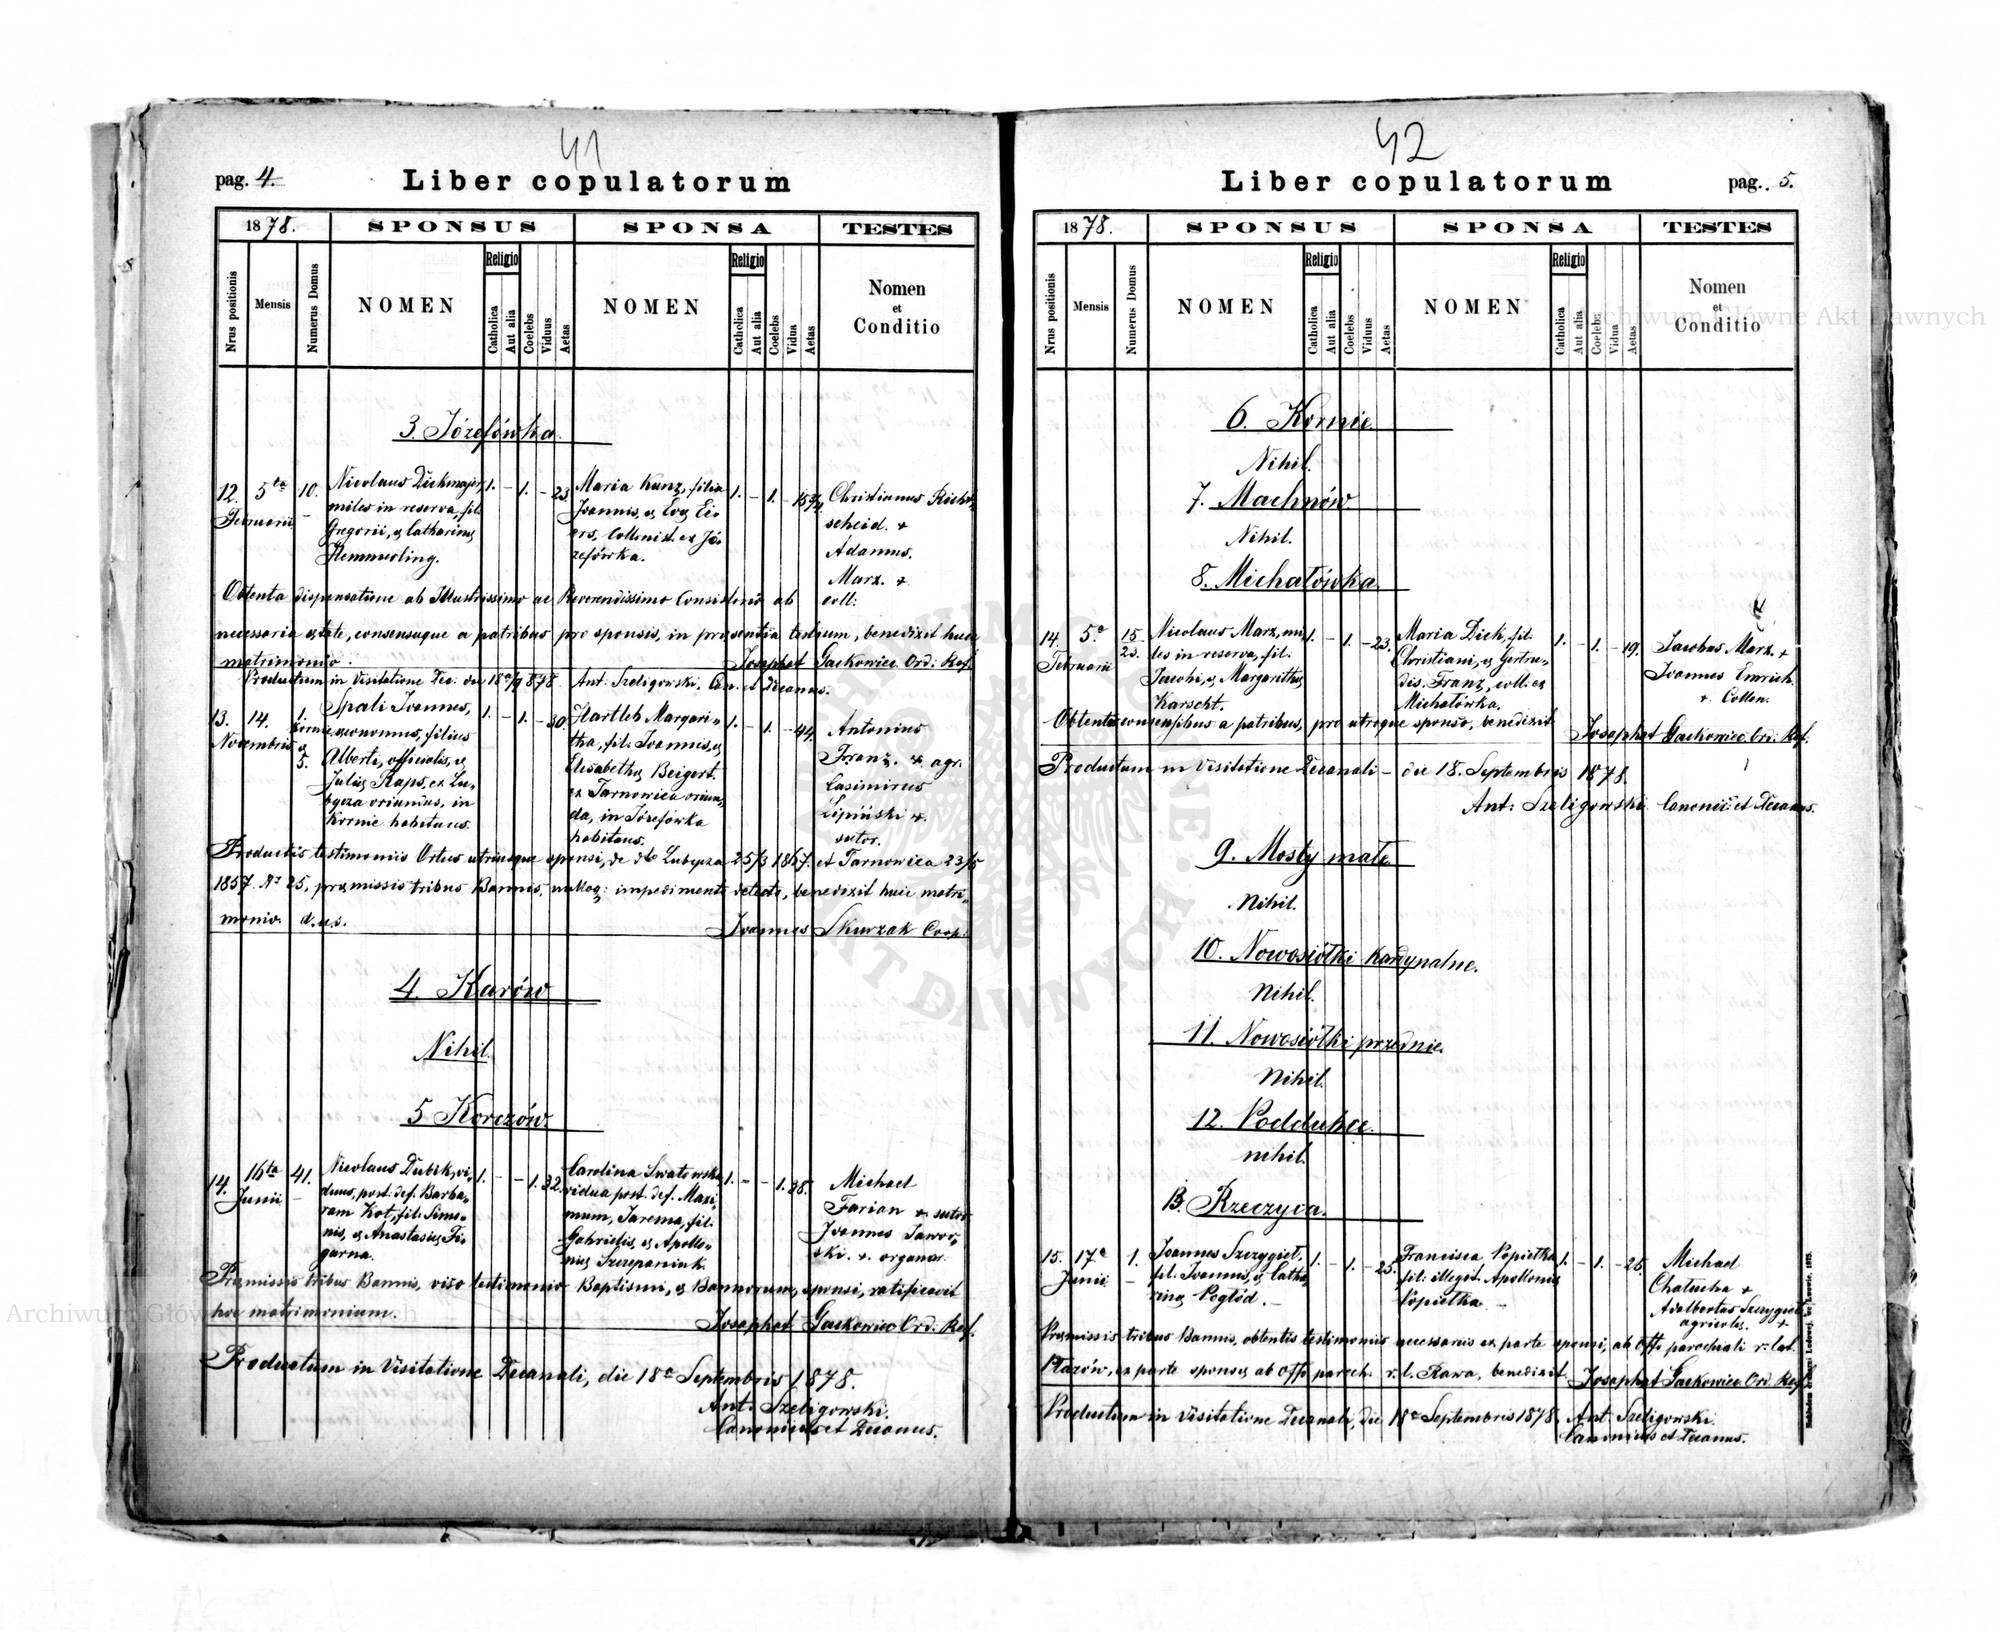 41
pag. 4.
Liber copulatorum
1878.
SPONSUS
SPONSA
TESTES
Nrus positionis
Mensis
Numerus Domus
NOMEN
Religio
Catholica
Aut alia
Coelebs
Viduus
Aetas
NOMEN
Religio
Catholica
Aut alia
Coelebs
Vidua
Aetas
Nomen
et
Conditio
3. Józefówka.
12. 5ta 10.
Februarii –
Nicolaus Dickmajer,
miles in reserva, fil.
Gregorii, & Catharinæ
Hemmerling.
1. – 1. – 23
Maria Kunz, filia
Joannis, & Evæ Ei-
ers, Collonist. ex Jó-
zefówka.
1. – 1. – 15 3/4
Christianus Richt-
scheid. +
Adamus.
Marz. +
coll:
Obtenta dispensatione ab Illustrissimo ac Reverendissimo Consistorio ab
necessaria ætate, consensuque a patribus pro sponsis, in præsentia testium, benedixit huic
matrimonio. Josephat Gackowiec Ord: Ref.
Productum in Visitatione Dec. die 18a/9 878. Ant: Szeligowski, Can. et Decanus.
13. 14. 1.
Novembris Kornie
&
5.
Spali Joannes,
œconomus, filius
Alberti, officialis, &
Juliæ Raps, ex Lu-
bycza oriunus, in
Kornie habitans.
1. – 1. – 30.
Hartleb Margari-
tha, fil: Joannis, &
Elisabethæ Beigert.
ex Tarnowica oriun-
da, in Józefówka
habitans.
1. – 1. – 44.
Antonius
Franz. + agr.
Casimirus
Lipiński +.
sutor.
Productis testimoniis Ortus utriusque sponsi, de dto Lubycza 25/3 1867. et Tarnowica 23/5
1857. Nr 25, præmissis tribus Bannis, nulloq: impedimento detecto, benedixit huic matri-
monio. d.u.s.
Joannes Skurzak Coop.
4. Karów
Nihil.
5 Korczów.
14. 16ta 41.
Junii –
Nicolaus Dubik, vi-
duus, post. def. Barba-
ram Kot, fil: Simo-
nis, & Anastasiæ Fi-
garna.
1. – – 1. 32.
Carolina Swatowska
vidua post. def. Maxi-
mum, Jarema, fil:
Gabrielis, & Apollo-
niæ Szczepaniuk.
1. – – 1. 38.
Michael
Farian + sutor
Joannes Jawor-
ski. +. organar.
Præmissis tribus Bannis, viso testimonio Baptismi, & Bannorum, sponsi, ratificavit
hoc matrimonium.
Josephat Gackowiec Ord: Ref.
Productum in Visitatione Decanali, die 18a Septembris 1878.
Ant: Szeligowski.
Canonicus et Decanus.
42
Liber copulatorum
pag. 5.
1878.
SPONSUS
SPONSA
TESTES
Nrus positionis
Mensis
Numerus Domus
NOMEN
Religio
Catholica
Aut alia
Coelebs
Viduus
Aetas
NOMEN
Religio
Catholica
Aut alia
Coelebs
Vidua
Aetas
Nomen
et
Conditio
6. Kornie.
Nihil.
7. Machnów.
Nihil.
8. Michałówka.
14. 5a 15
Februarii 23.
Nicolaus Marz, mi-
les in reserva, fil:
Jacobi, & Margarithæ
Karscht.
1. – 1. – 23.
Maria Dick, fil.
Christiani, & Gertru-
dis. Franz, coll. ex
Michałówka.
1. – 1. – 19.
Jacobus Marz. +
Joannes Emrich.
+ Collon.
Obtentis consensibus a patribus, pro utroque sponso, benedixit
Josaphat Gackowiec Ord: Ref.
Productum in Visitatione Decanali – die 18. Septembris 1878.
Ant: Szeligowski Canonic et Decanus.
9. Mosty małe
Nihil.
10. Nowosiółki kardynalne.
Nihil.
11. Nowosiółki przednie.
Nihil.
12. Poddubce.
nihil.
13. Rzeczyca.
15. 17a 1.
Junii –
Joannes Szczygieł.
fil: Joannis, & Catha-
rinæ Pogłód. –
1. – 1. – 25.
Francisca Popietka
fil: illegit. Apolloniæ
Popietka –
1. – 1. – 26.
Michael
Chatucha +
Adalbertus Szczygieł
agricolæ. +
Præmissis tribus Bannis, obtentis testimoniis necessariis ex parte sponsi, ab Offo parochiali r: lat.
Płazów, ex parte sponsæ ab Offo paroch. r. l. Rawa, benedixit Josephat Gackowiec Ord. Ref.
Productum in Visitatione Decanali, die 18a Septembris 1878. Ant: Szeligowski.
Canonicus et Decanus.
Nakładem drukarni Ludowej, we Lwowie. 1875.
Archiwum Główne Akt Dawnych
Archiwum Główne Akt Dawnych
ARCHIWUM GŁÓWNE AKT DAWNYCH